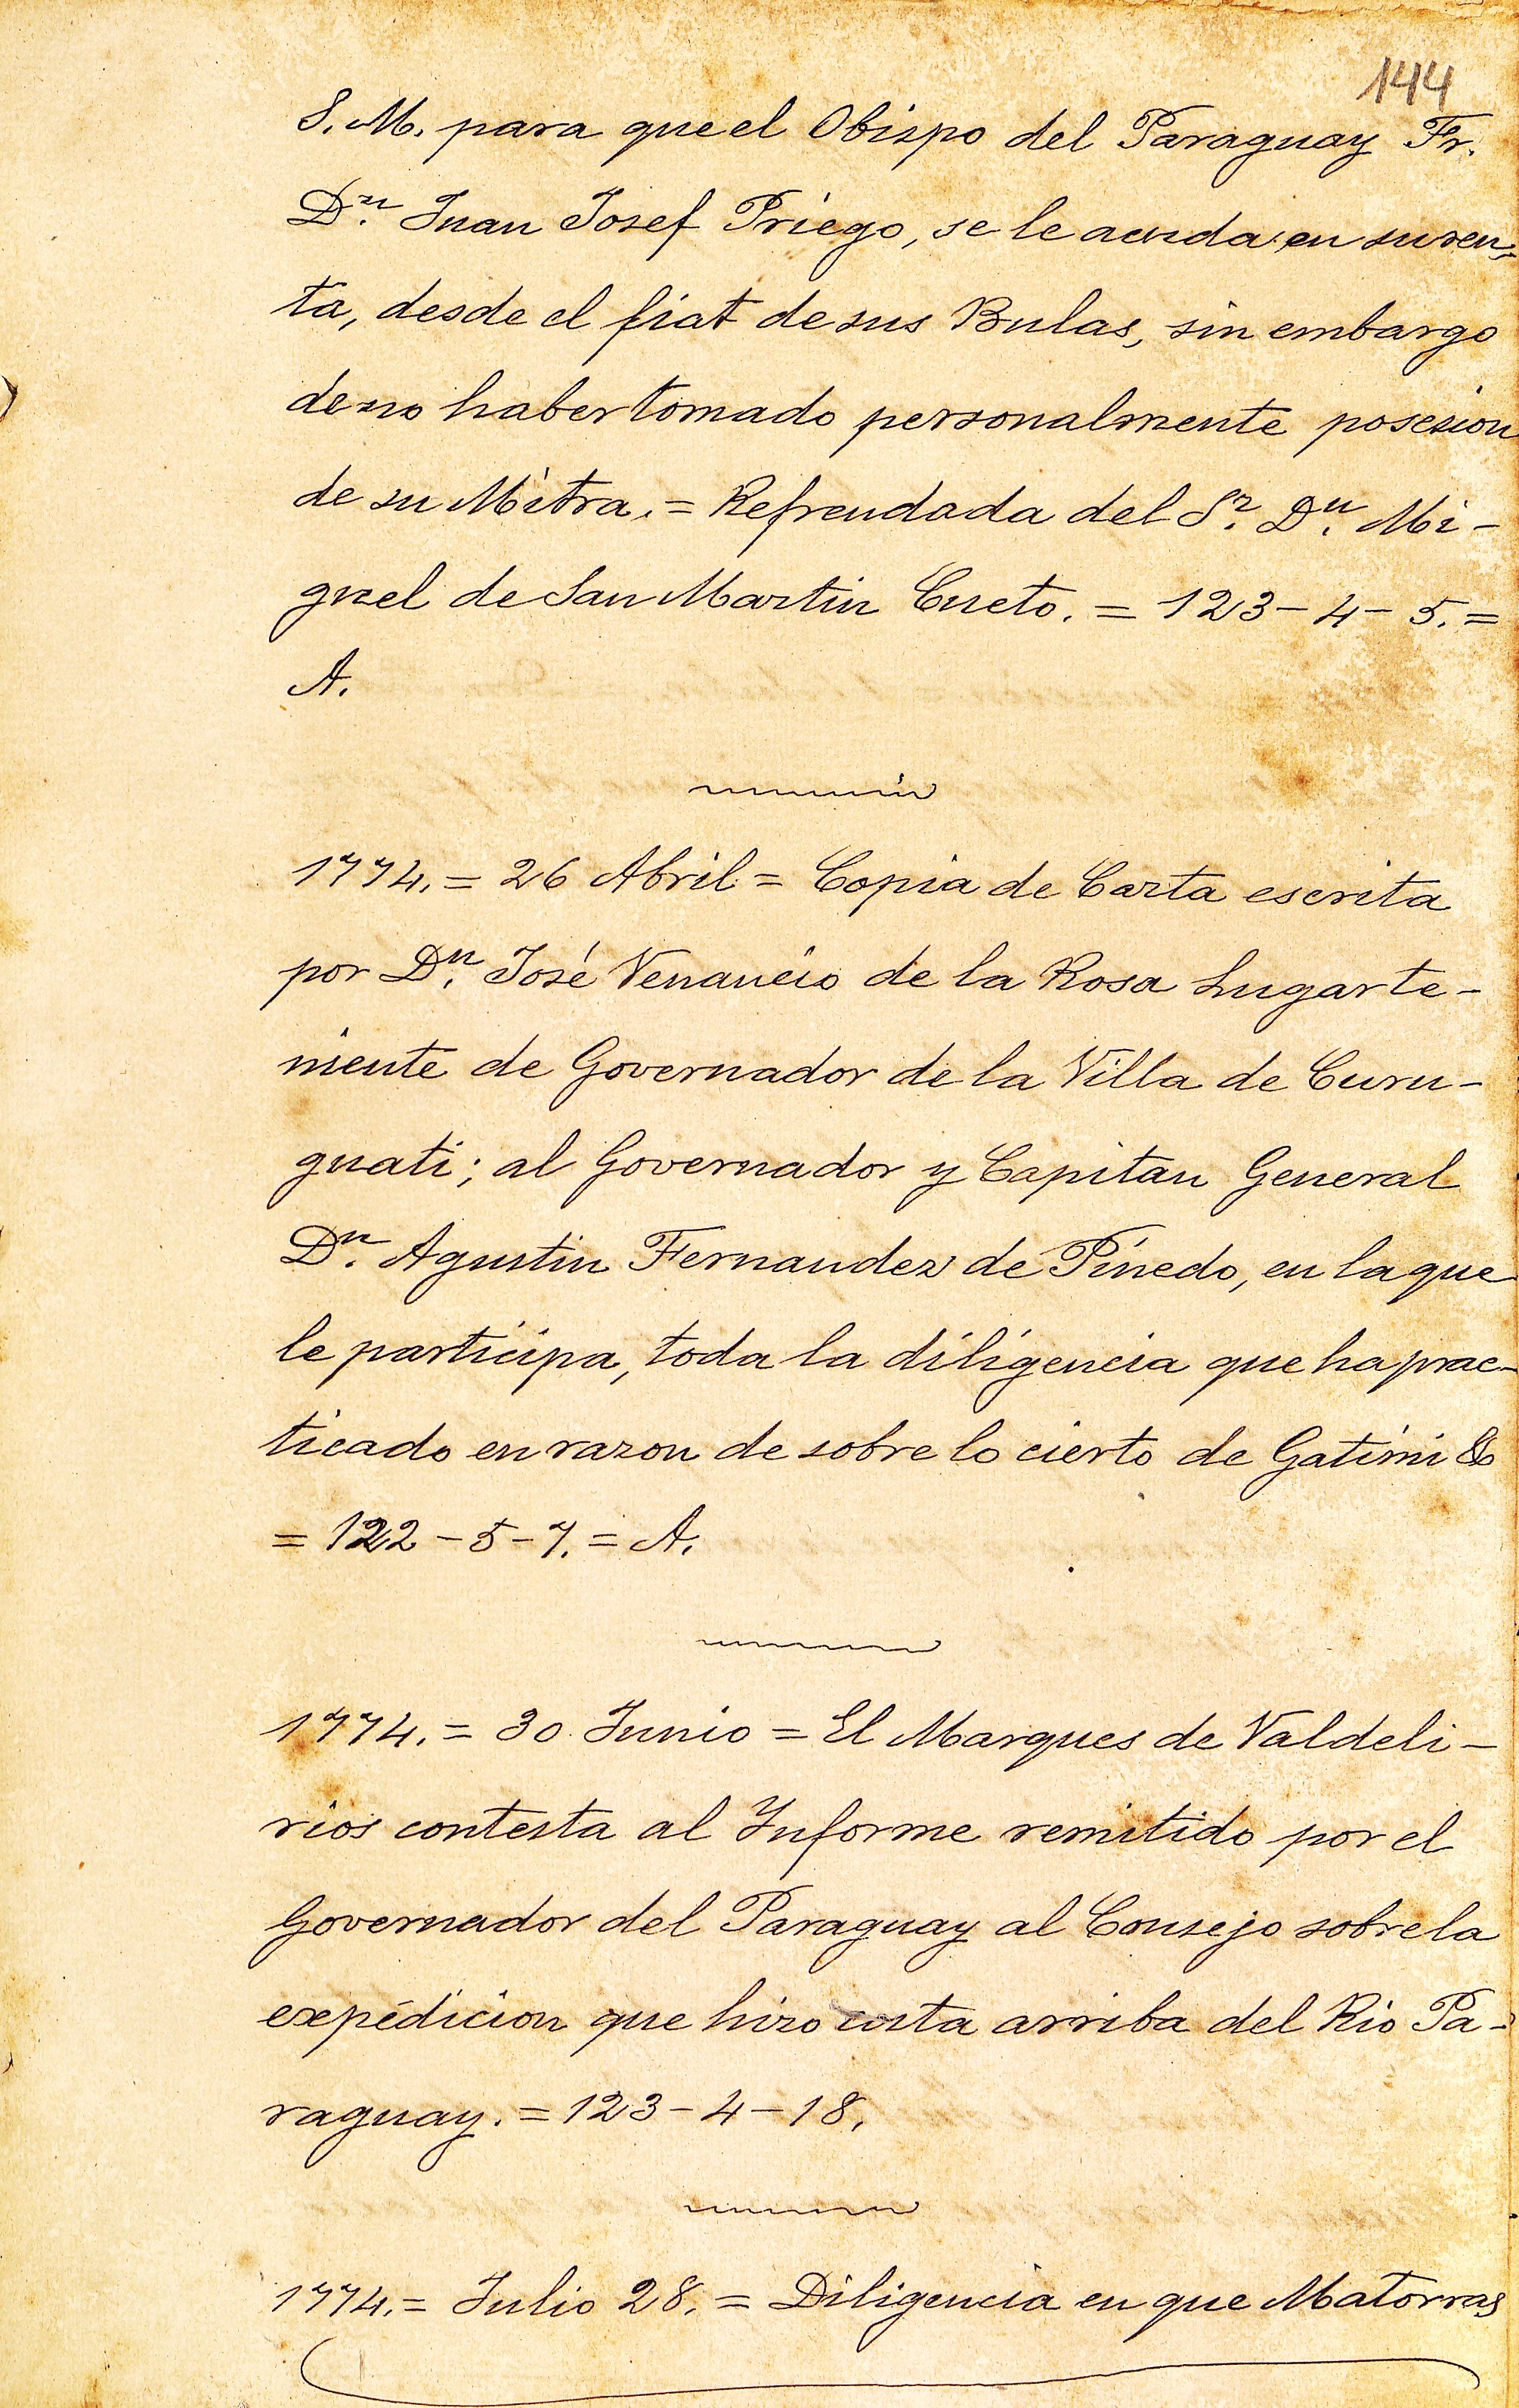 144
S. M. para que el Obispo del Paraguay Fr.
Dn. Juan Josef Priego, se le acuda en su ren-
ta, desde el fiat de sus Bulas, sin embargo
de no haber tomado personalmente posesion
de su Mitra. = Refrendada del Sr. Dn. Mi-
guel de San Martin Cueto. = 123 - 4 - 5. =
A.
1774. = 26 Abril = Copia de Carta escrita
por Dn. José Venancio de la Rosa Lugarte-
niente de Governador de la Villa de Curu-
guati; al Governador y Capitan General
Dn. Agustin Fernandez de Pinedo, en la que
le participa, toda la diligencia que ha prac-
ticado en razon de sobre lo cierto de Gatimi &
= 122 - 5 - 7. = A.
1774. = 30 Junio = El Marques de Valdeli-
rios contesta al Informe remitido por el
Governador del Paraguay al Consejo sobre la
expédicion que hizo costa arriba del Rio Pa-
raguay. = 123 - 4 - 18.
1774. = Julio 28. = Diligencia en que Matorras